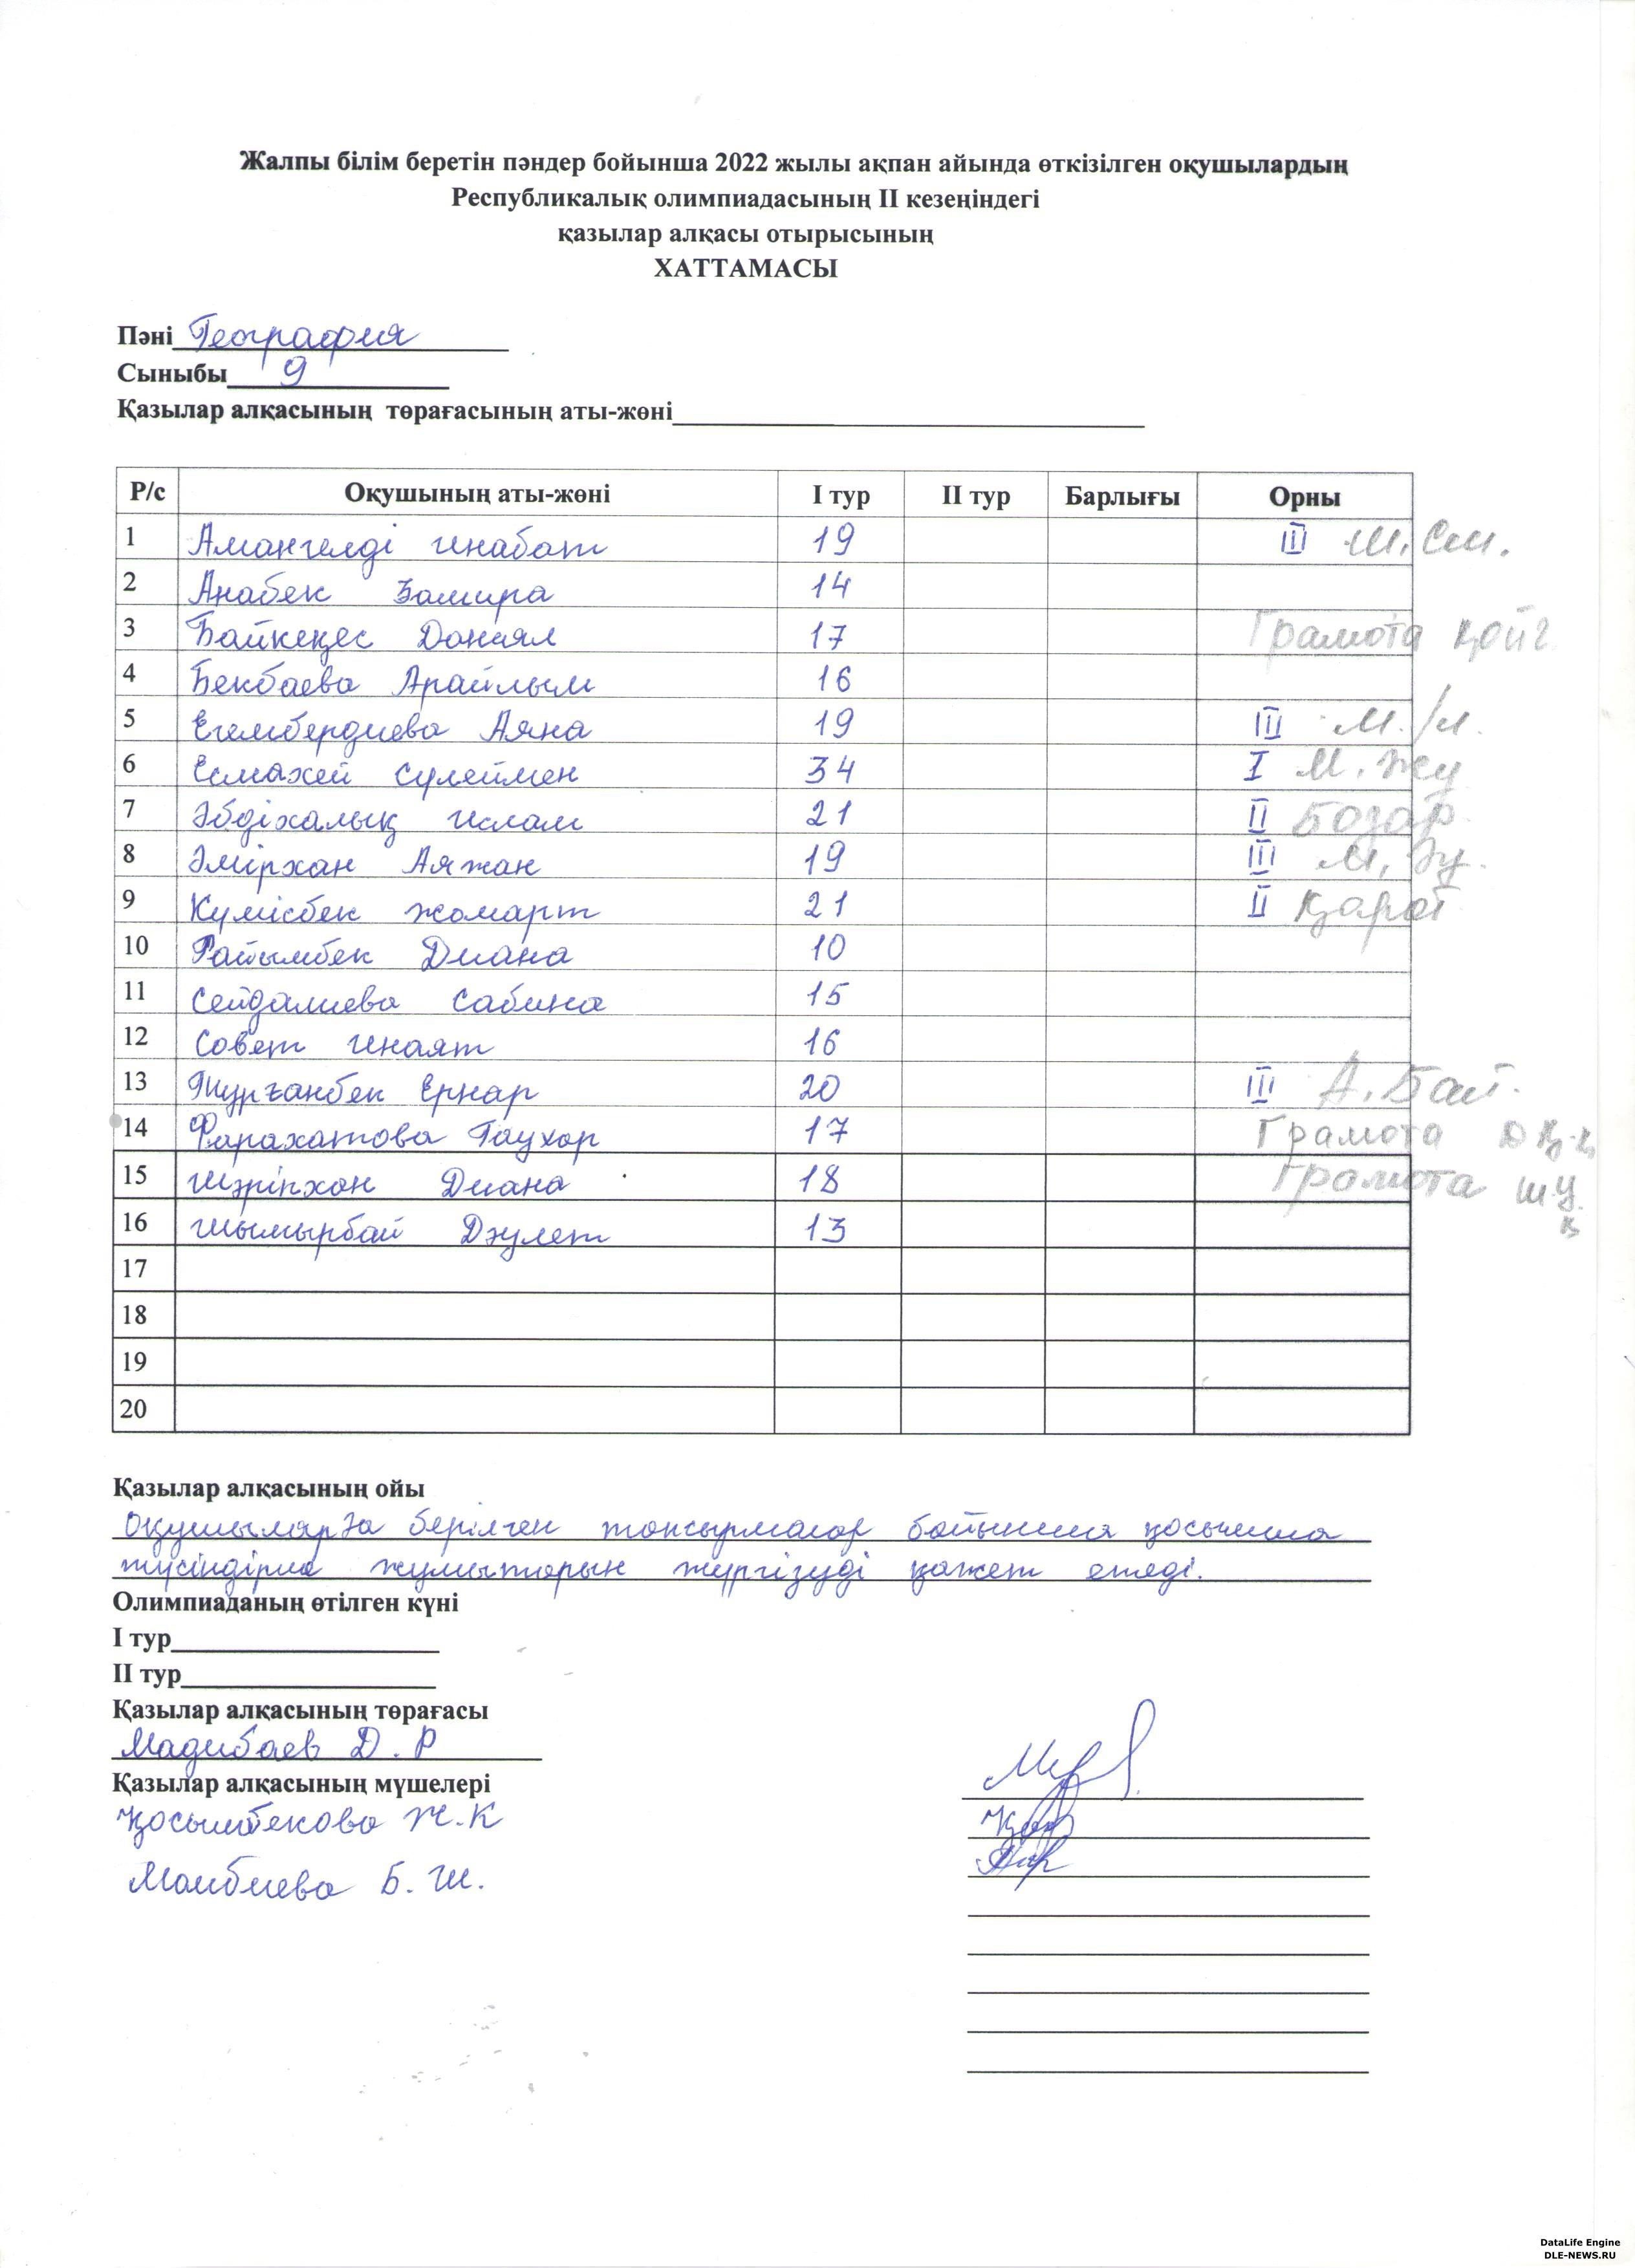 Жалпы білім беретін пәндер бойынша 2022 жылы ақпан айында өткізілген оқушылардың
Республикалық олимпиадасының II кезеңіндегі
қазылар алқасы отырысының
ХАТТАМАСЫ
Пәні География
Сыныбы 9
Қазылар алқасының төрағасының аты-жөні
Р/с Оқушының аты-жөні I тур II тур Барлығы Орны
1 Амангелді Инабат 19 III Ш. См.
2 Анабек Замира 14
3 Байкеңес Даниял 17 Грамота қойг
4 Бекбаева Арайлым 16
5 Егембердиева Аяна 19 III М./М.
6 Есмахей Сулеймен 34 I М. Жу
7 Әбдіхалық Ислам 21 II Бозар
8 Әмірхан Аяжан 19 III М.
9 Күмісбек Жомарт 21 II Қарат
10 Райымбек Диана 10
11 Сейдалиева Сабина 15
12 Совет Инаят 16
13 Тұрғанбек Ернар 20 III А. Бай.
14 Фарахатова Гаухар 17 Грамота
15 Шәріпхан Диана 18 Грамота
16 Шымырбай Дәулет 13
17
18
19
20
Қазылар алқасының ойы
Оқушыларға берілген тапсырмалар бойынша қосымша
түсіндірме жұмыстарын жүргізуді қажет етеді.
Олимпиаданың өтілген күні
I тур
II тур
Қазылар алқасының төрағасы
Мадибаев Д.Р
Қазылар алқасының мүшелері
Қосымбекова Ж.К
Маибиева Б.Ш.
DataLife Engine
DLE-NEWS.RU